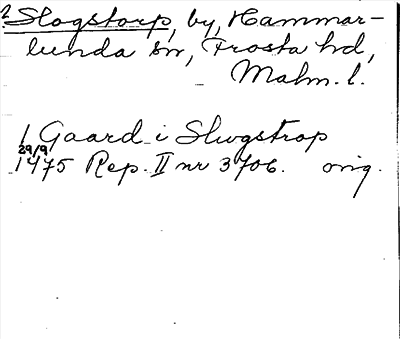 ? Slogstorp, by, Hammar-
lunda sn, Frosta hd,
Malm. l.
1 Gaard i Slugstrop
29/9
1475 Rep. II nr 3706. orig.